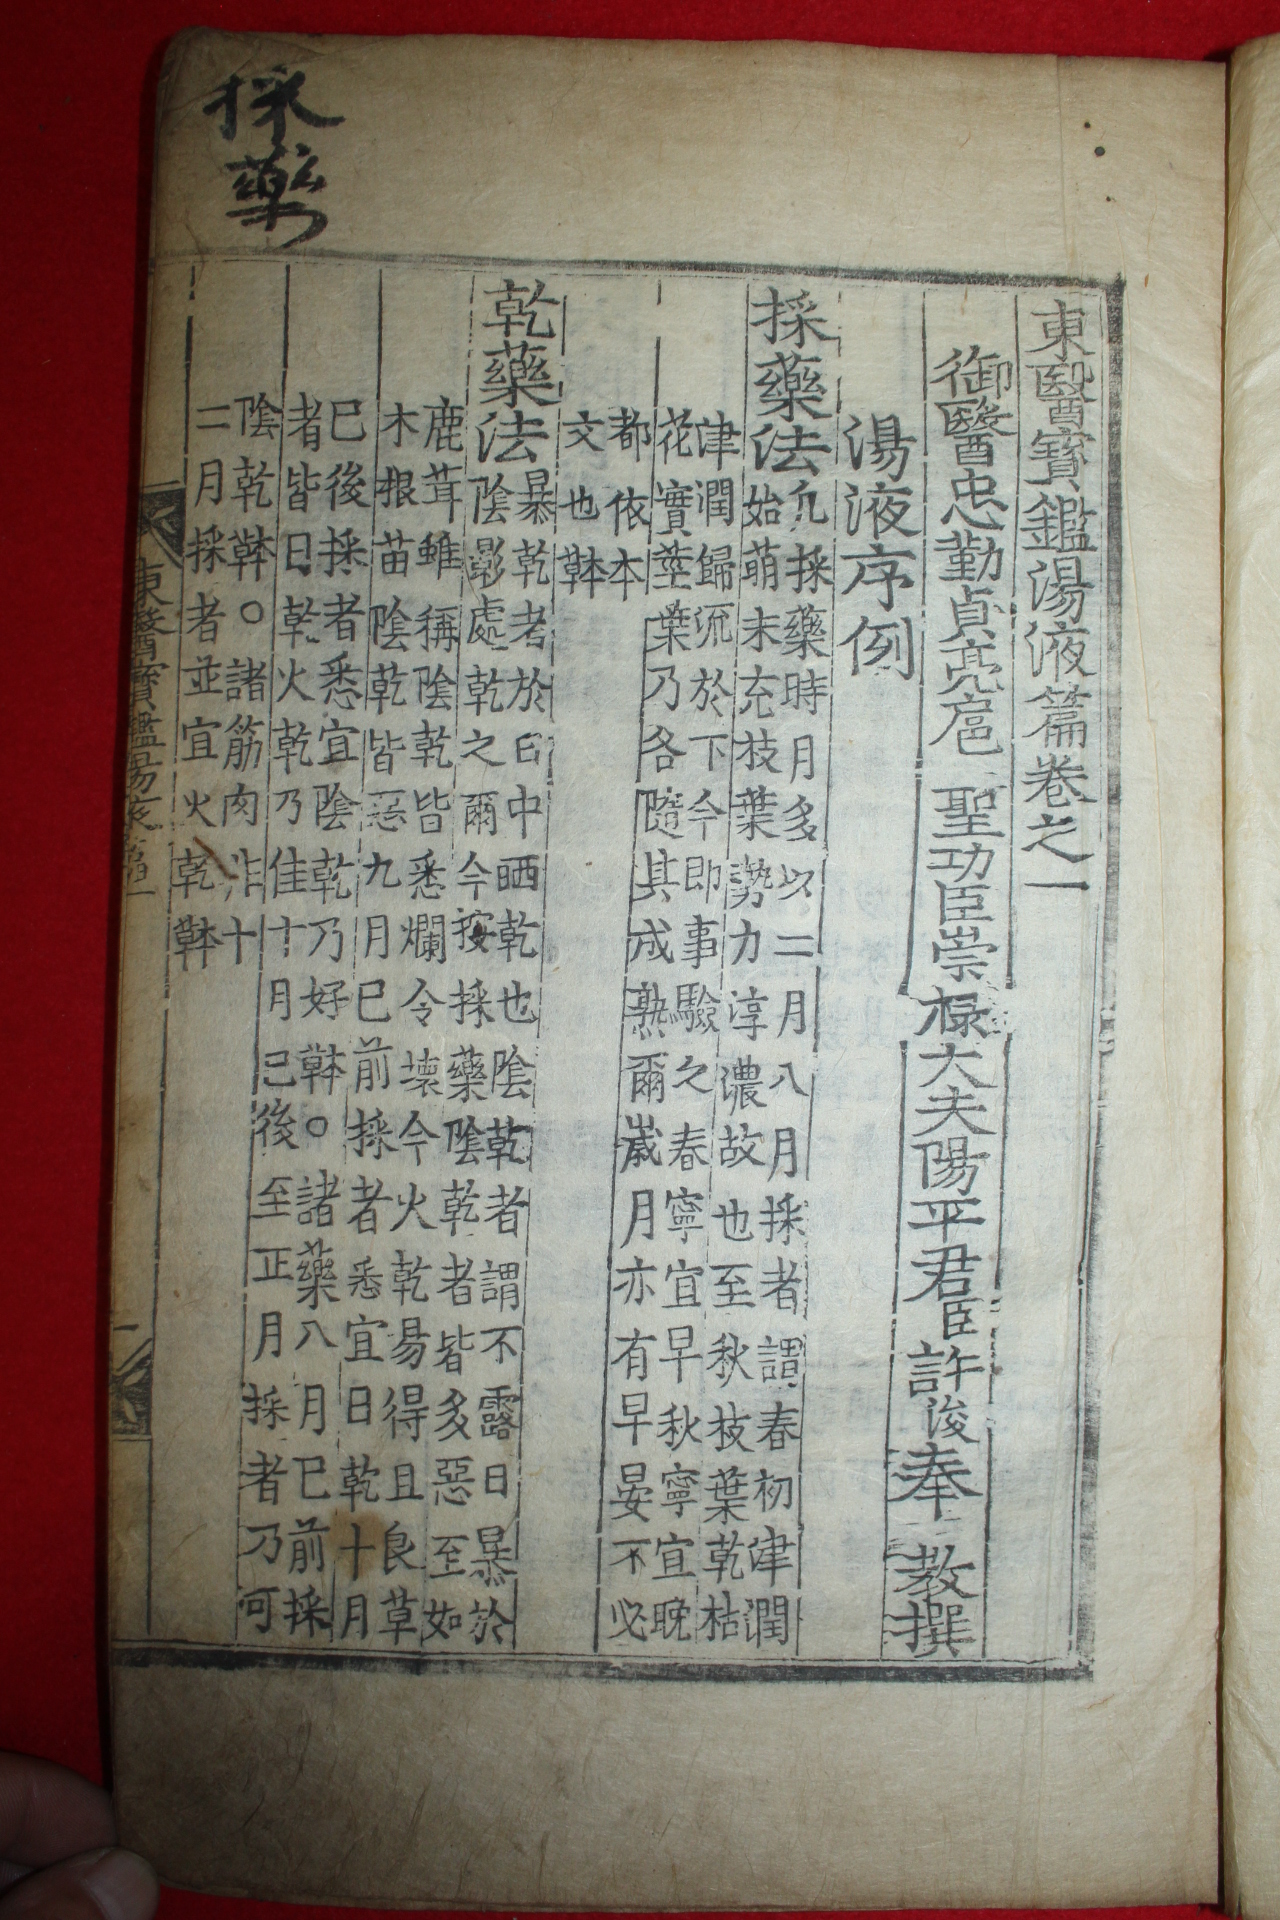 採藥
東醫寶鑑湯液篇卷之一
御醫忠勤貞亮扈聖功臣崇祿大夫陽平君臣許浚奉敎撰
湯液序例
採藥法
凡採藥時月多以二月八月採者謂春初津潤
始萌未充枝葉勢力淳濃故也至秋枝葉乾枯
津潤歸流於下今卽事驗之春寧宜早秋寧宜晩
花實莖葉乃各隨其成熟爾歲月亦有早晏不必
都依本
文也本草
乾藥法
暴乾者於日中晒乾也陰乾者謂不露日暴於
陰影處乾之爾今按採藥陰乾者皆多惡至如
鹿茸雖稱陰乾皆悉爛令壞今火乾易得且良草
木根苗陰乾皆惡九月已前採者悉宜日乾十月
已後採者悉宜陰乾乃好本草○諸藥八月已前採
者皆日乾火乾乃佳十月已後至正月採者乃可
陰乾本草○諸筋肉非十
二月採者並宜火乾本草
東醫寶鑑湯液篇一
一